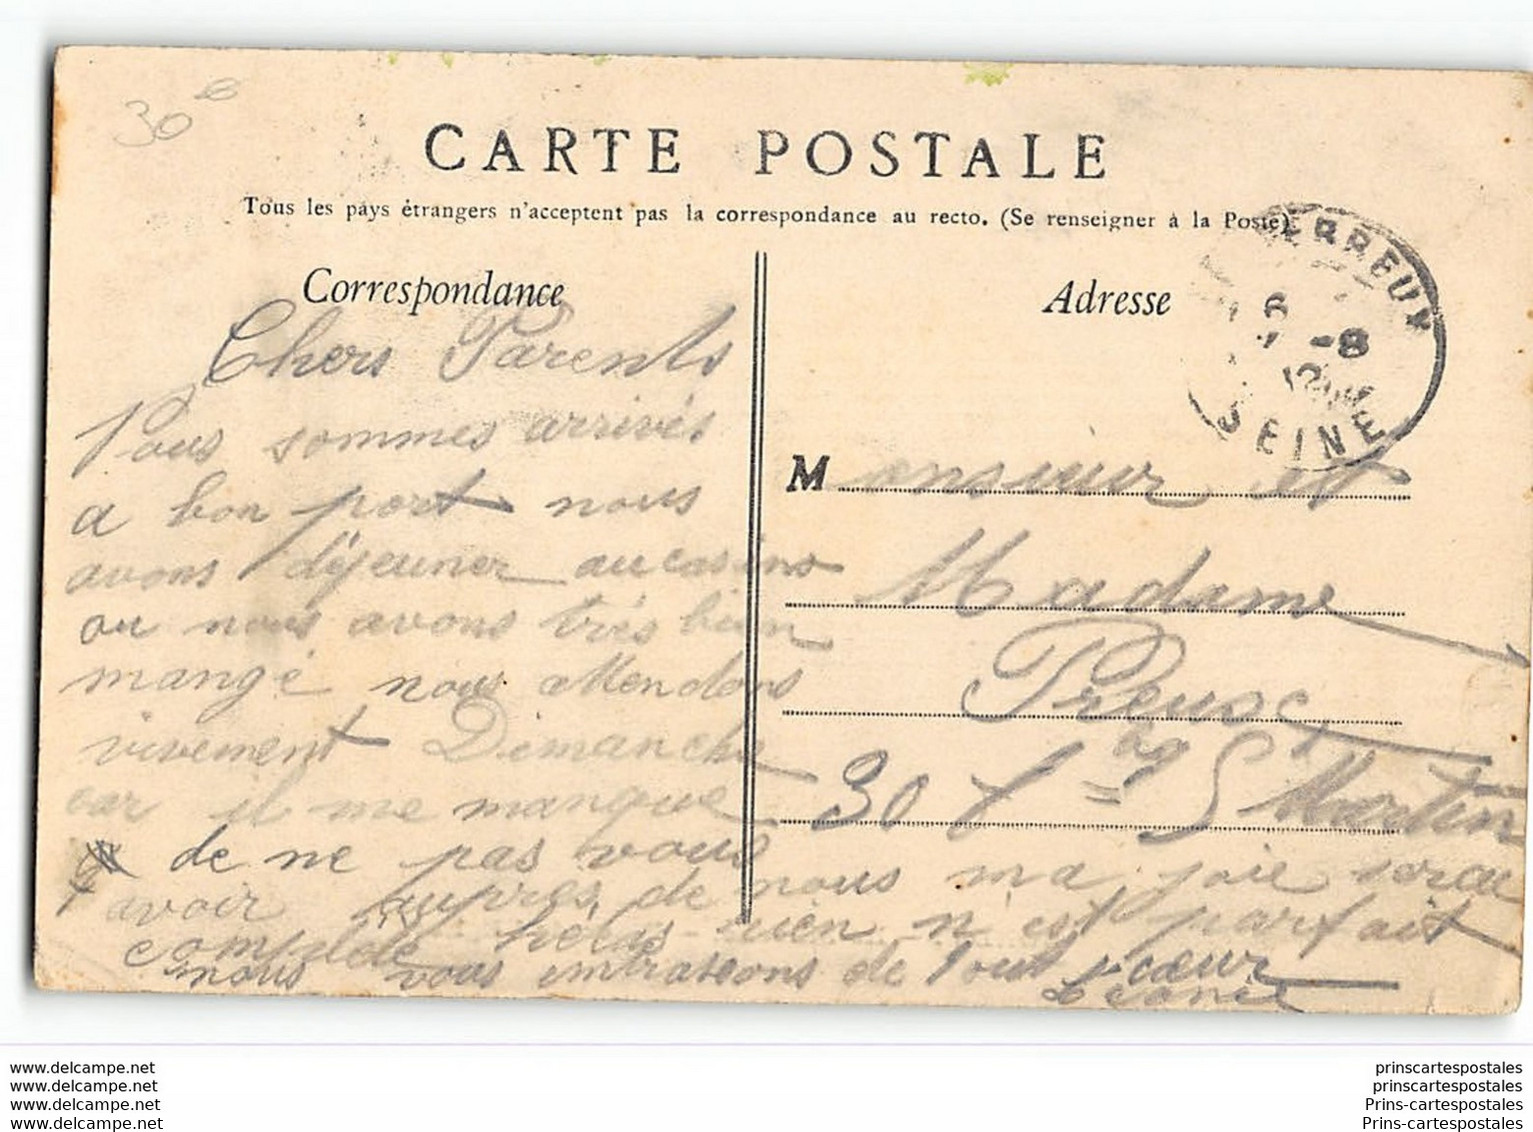 30 €
CARTE POSTALE
Tous les pays étrangers n'acceptent pas la correspondance au recto. (Se renseigner à la Poste)
Correspondance
Chers Parents
Nous sommes arrivés
a bon port nous
avons déjeuner au casino
ou nous avons très bien
mangé nous attendons
vivement Dimanche
car il me manque
de ne pas vous
avoir auprès de nous ma joie serai
complète hélas rien n'est parfait
nous vous embrassons de tout cœur
Léonie
Adresse
PERREUX
6
-8
12
SEINE
Monsieur et
Madame
30 f bg St Martin
www.delcampe.net
www.delcampe.net
www.delcampe.net
www.delcampe.net
prinscartespostales
prinscartespostales
Prins-cartespostales
Prins-cartespostales